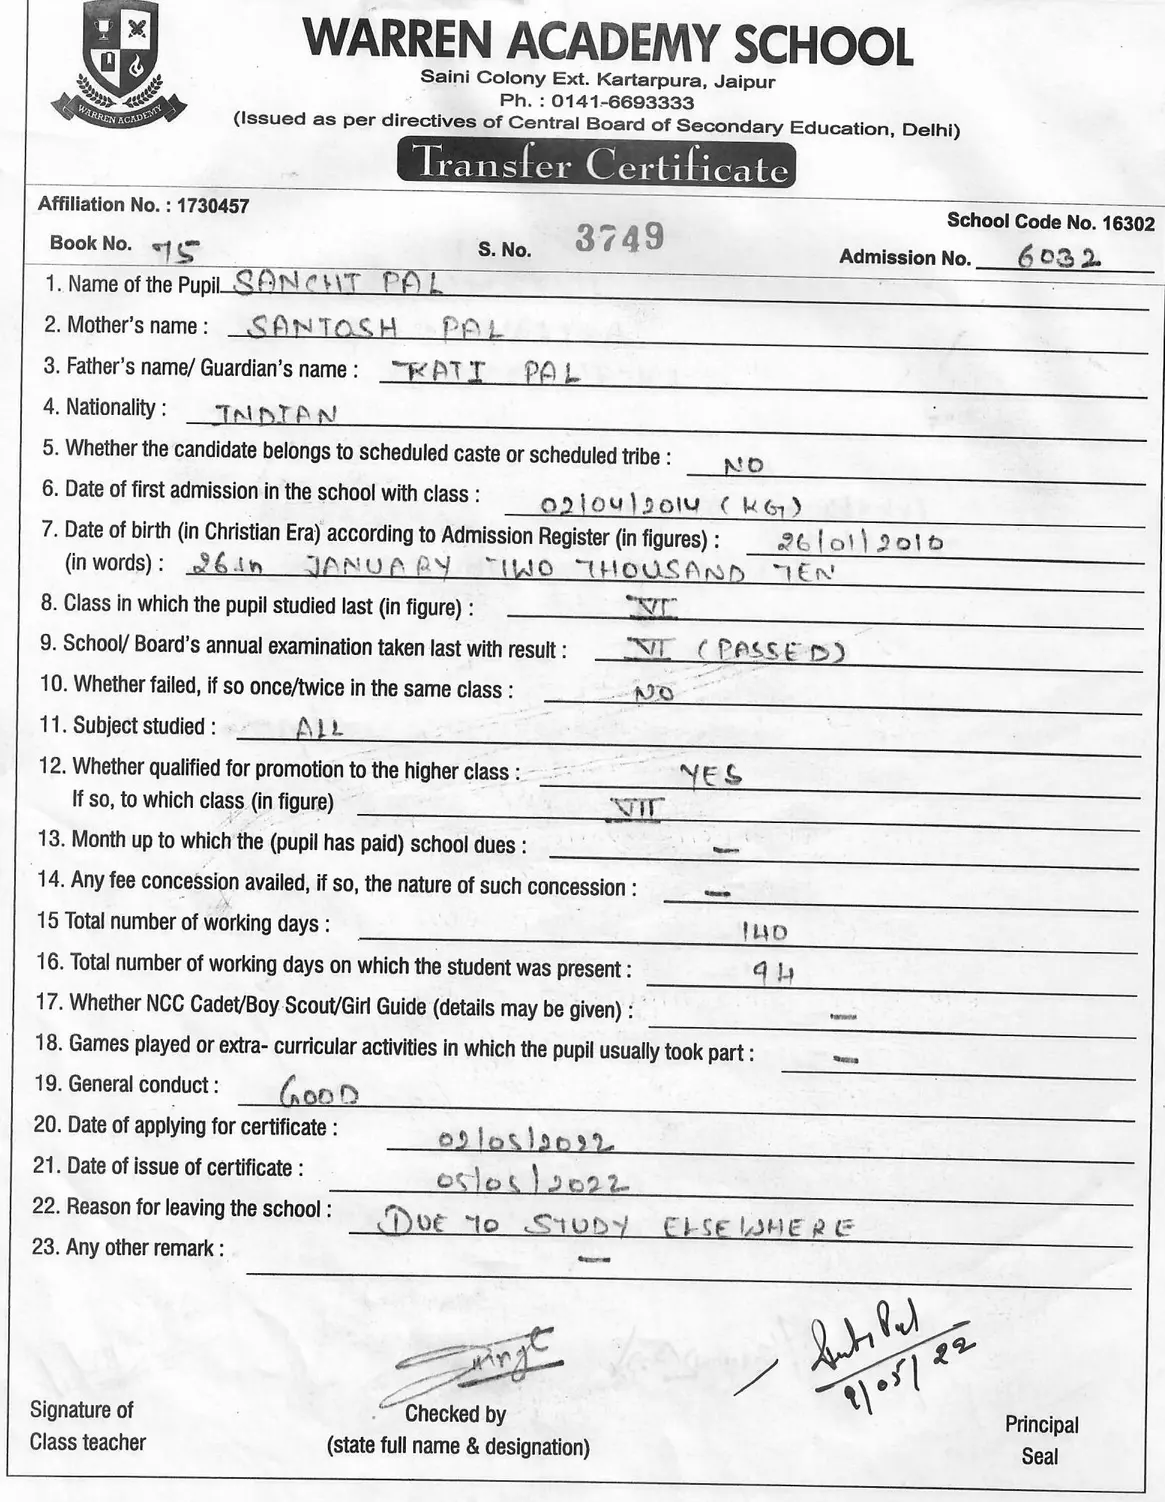 WARREN ACADEMY
WARREN ACADEMY SCHOOL
Saini Colony Ext. Kartarpura, Jaipur
Ph. : 0141-6693333
(Issued as per directives of Central Board of Secondary Education, Delhi)
Transfer Certificate
Affiliation No. : 1730457
School Code No. 16302
Book No. 75 S. No. 3749 Admission No. 6032
1. Name of the Pupil SANCHT PAL
2. Mother's name : SANTOSH PAL
3. Father's name/ Guardian's name : PAL
4. Nationality : INDIAN
5. Whether the candidate belongs to scheduled caste or scheduled tribe : NO
6. Date of first admission in the school with class : 02/04/2014 (KG)
7. Date of birth (in Christian Era) according to Admission Register (in figures) : 26/01/2010
(in words) : 26th JANUARY TWO THOUSAND TEN
8. Class in which the pupil studied last (in figure) : VI
9. School/ Board's annual examination taken last with result : VI (PASSED)
10. Whether failed, if so once/twice in the same class : NO
11. Subject studied : ALL
12. Whether qualified for promotion to the higher class : YES
If so, to which class (in figure) VII
13. Month up to which the (pupil has paid) school dues : —
14. Any fee concession availed, if so, the nature of such concession : —
15 Total number of working days : 140
16. Total number of working days on which the student was present : 94
17. Whether NCC Cadet/Boy Scout/Girl Guide (details may be given) : —
18. Games played or extra- curricular activities in which the pupil usually took part : —
19. General conduct : GOOD
20. Date of applying for certificate : 02/05/2022
21. Date of issue of certificate : 05/05/2022
22. Reason for leaving the school : DUE TO STUDY ELSEWHERE
23. Any other remark : —
Pal
9/05/22
Signature of
Class teacher
Checked by
(state full name & designation)
Principal
Seal